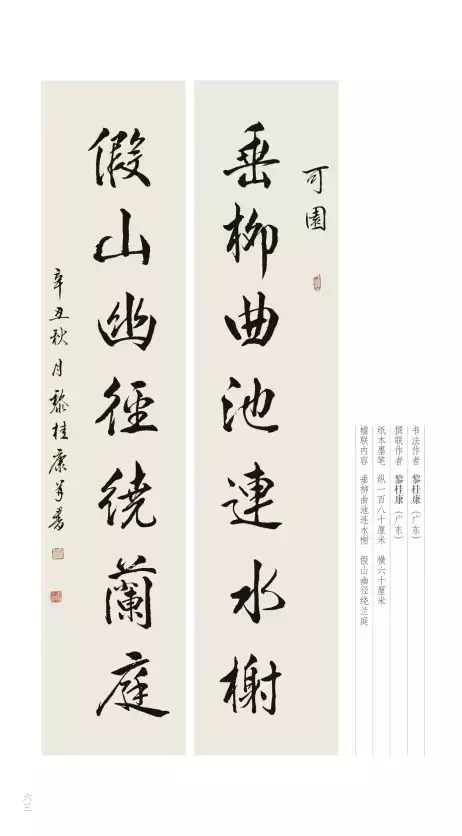 可園
垂柳曲池連水榭
假山幽徑繞蘭庭
辛丑秋月黎桂康並書
书法作者 黎桂康（广东）
撰联作者 黎桂康（广东）
纸本墨笔 纵一百八十厘米 横六十厘米
楹联内容 垂柳曲池连水榭 假山幽径绕兰庭
六三